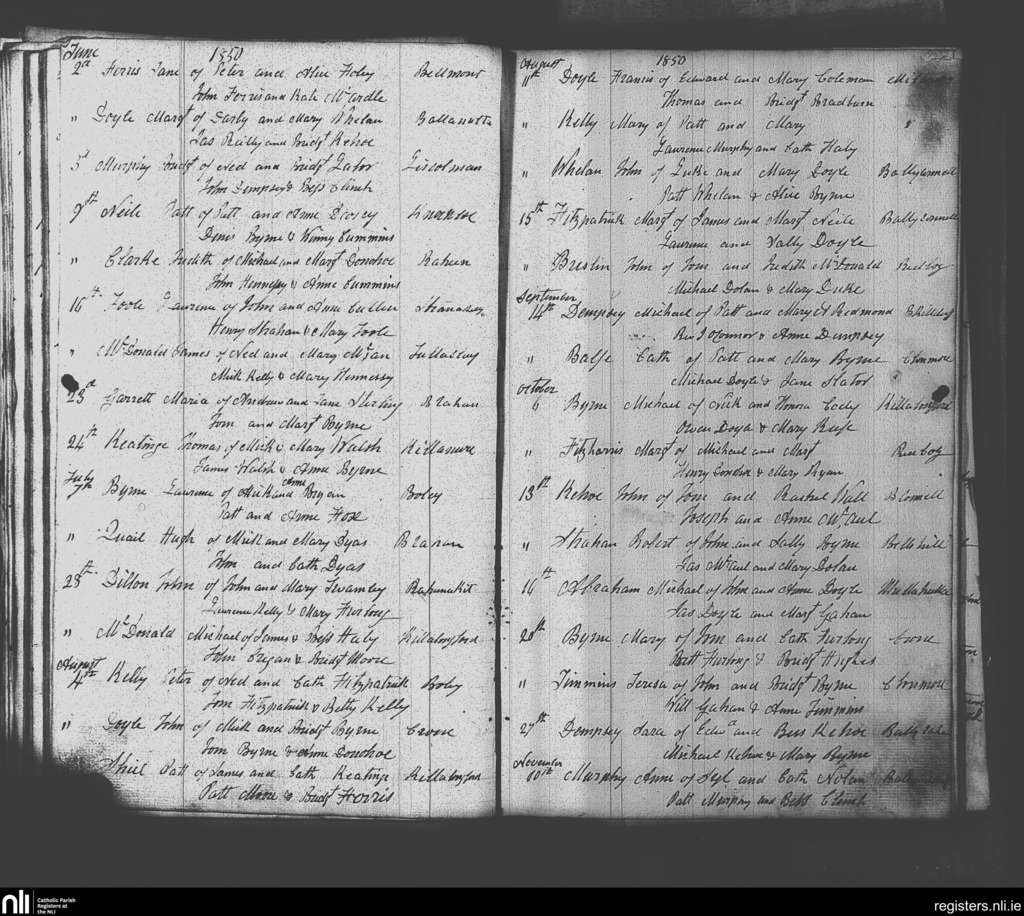 June 1850
2d Forris Jane of Peter and Alice Foley Bellmont
John Forris and Kate McArdle
" Doyle Margt of Darby and Mary Whelan
Jas Reilly and Bridgt Kehoe
3d Murphy Bridgt of Ned and Bridgt Lator Liscolman
John Dempsey & Bess Clinch
9th Neile Patt of Patt and Anne
Denis Byrne & Winny Cummins
" Clarke Judith of Michael and Margt Donohoe Raheen
John Hennessy & Anne Cummins
16th Toole Laurence of John and Anne Cullen
Henry Strahan & Mary Toole
" McDonald James of Ned and Mary
Mick Kelly & Mary Hennessy
23d Garrett Maria of Andrew and Jane Sterling
Tom and Margt Byrne
24th Keatinge Thomas of Mick & Mary Walsh
James Walsh & Anne Byrne
July
7th Byrne Laurence of Mick and Anne Bryan Boley
Patt and Anne Fox
" Quail Hugh of Mick and Mary Dyas
John and Cath Dyas
28th Dillon John of John and Mary Twamley
Laurence Kelly & Mary Furlong
" McDonald Michael of James & Bess Haly Killabegford
John Cregan & Bridgt Moore
August
4th Kelly Peter of Ned and Cath Fitzpatrick Boley
Tom Fitzpatrick & Betty Kelly
" Doyle John of Mick and Bridgt Byrne Crone
Tom Byrne & Anne Donohoe
Patt of James and Cath Keatinge
Patt Moore & Bridgt Forris
August 1850
11th Doyle Francis of Edward and Mary Coleman
Thomas and Bridgt Bradburn
" Kelly Mary of Patt and Mary "
Laurence Murphy and Cath Haly
" Whelan John of Luke and Mary Doyle
Patt Whelan & Alice Byrne
15th Fitzpatrick Margt of James and Margt Neile
Laurence and Sally Doyle
" Breslin John of Tom and Judith McDonald
Michael Dolan & Mary Duke
September
14th Dempsey Michael of Patt and Mary A Redmond
O'Connor & Anne Dempsey
" Balfe Cath of Patt and Mary Byrne Clonmore
Michael Doyle & Jane Slator
October
6 Byrne Michael of Nick and Honora Cody
Owen Doyle & Mary
" Fitzharris Margt of Michael and Margt
Henry Condor & Mary Ryan
13th Kehoe John of Tom and Rachel Wall
Joseph and Anne McCaul
" Strahan Robert of John and Sally Byrne
Jas McCaul and Mary Dolan
16th Abraham Michael of John and Anne Doyle
Jas Doyle and Margt Gahan
20th Byrne Mary of Tom and Cath Furlong Crone
Patt Furlong & Bridgt Hughes
" Timmins Teresa of John and Bridgt Byrne Clonmore
Will Gahan & Anne Timmins
27th Dempsey Sara of Edwd and Bess Kehoe
Michael Kehoe & Mary Byrne
November
10th Murphy Anne of Syl and Cath Nolan
Patt Murphy and Bess Clinch
nli Catholic Parish
Registers at
the NLI
registers.nli.ie